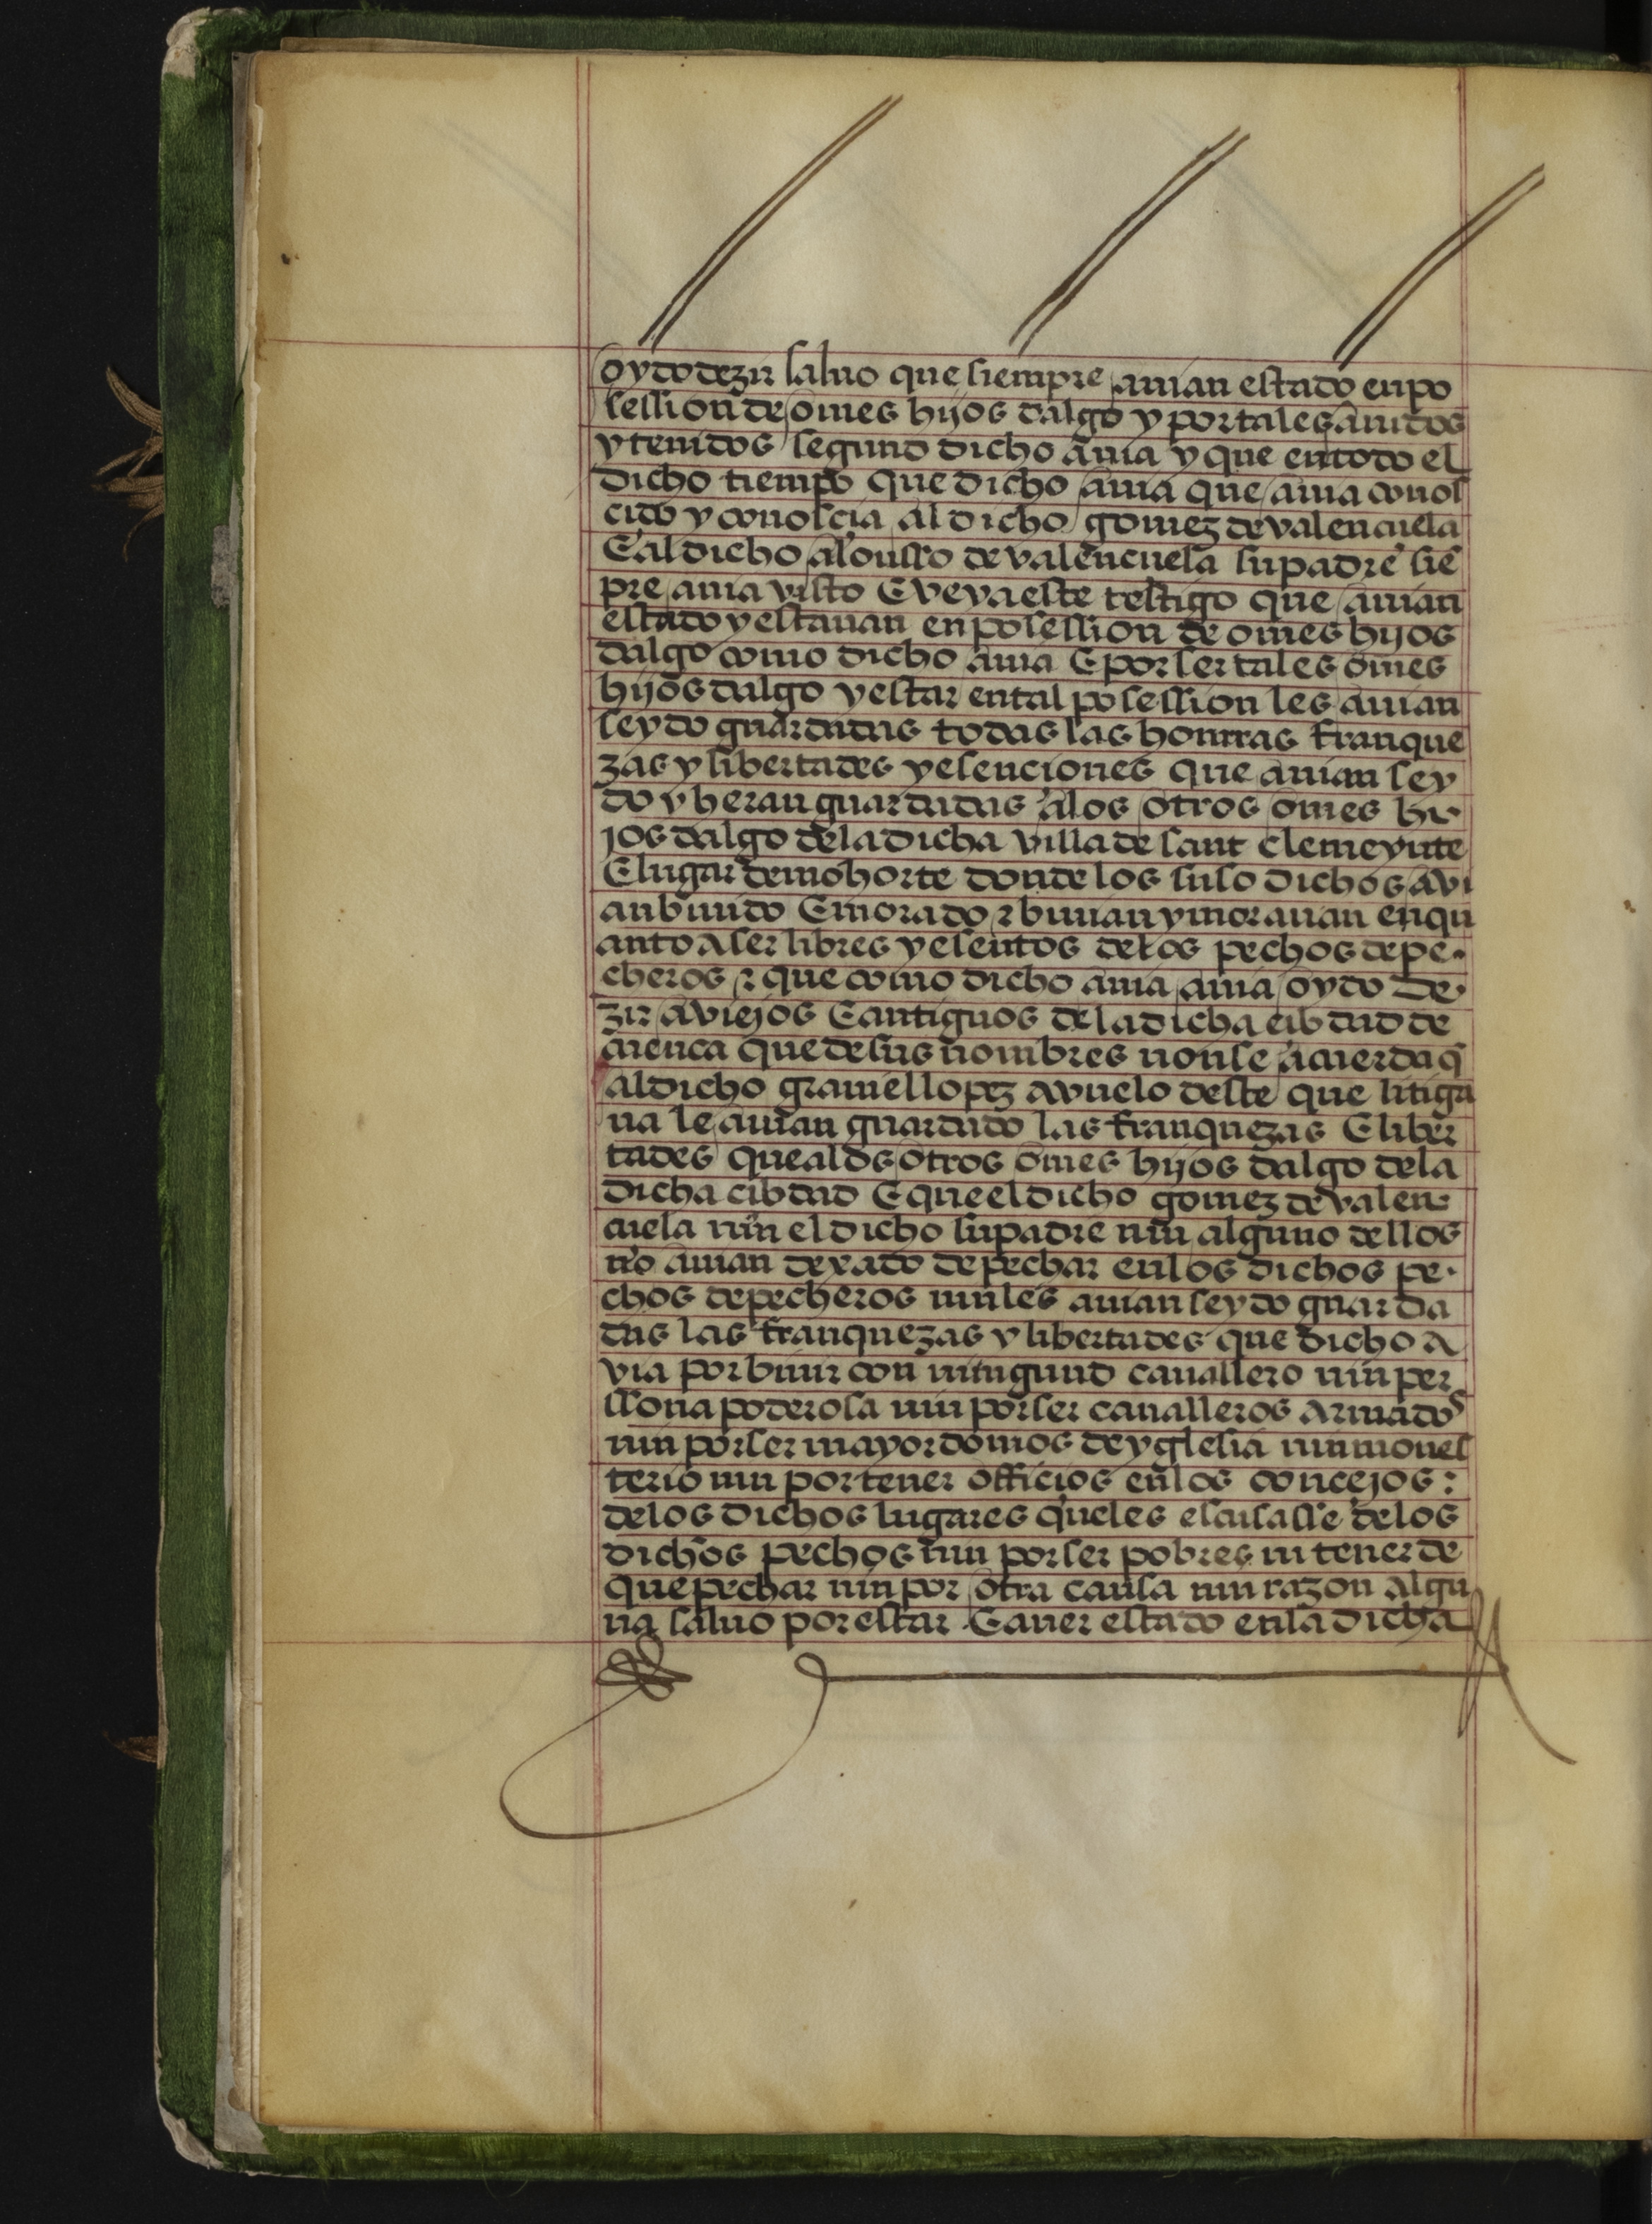 oydo dezir saluo que siempre auian estado en po
session de omes hijos dalgo y por tales auidos
y tenidos segund dicho auia y que en todo el
dicho tiempo que dicho auia que auia conos
cido y conoscia al dicho gomez de valençuela
E al dicho alonsso de valençuela su padre siē
pre auia visto E veya este testigo que auian
estado y estauan en posession de omes hijos
dalgo como dicho auia E por ser tales omes
hijos dalgo y estar en tal posession les auian
seydo guardadas todas las honrras franque
zas y libertades y esenciones que auian sey
do y heran guardadas a los otros omes hi
jos dalgo de la dicha villa de sant clemeynte
E lugar de mohorte donde los suso dichos avi
an biuido E morado r biuian y morauan en qu
anto a ser libres y esentos de los pechos de pe
cheros r que como dicho auia auia oydo de
zir a viejos E antiguos de la dicha cibdad de
cuenca que de sus nombres non se acuerda q̄
al dicho grauiel lopez avuelo deste que litiga
ua le auian guardado las franquezas E liber
tades que a los otros omes hijos dalgo de la
dicha cibdad E que el dicho gomez de valen
cuela nin el dicho su padre nin alguno dellos
no auian dexado de pechar en los dichos pe
chos de pecheros nin les auian seydo guarda
das las franquezas y libertades que dicho a
via por biuir con ningund cauallero nin per
ssona poderosa nin por ser caualleros armados
nin por ser mayordomos de yglesia nin mones
terio nin por tener officios en los concejos:
de los dichos lugares que les escusasse de los
dichos pechos nin por ser pobres ni tener de
que pechar nin por otra causa nin razon algu
na saluo por estar E auer estado en la dicha